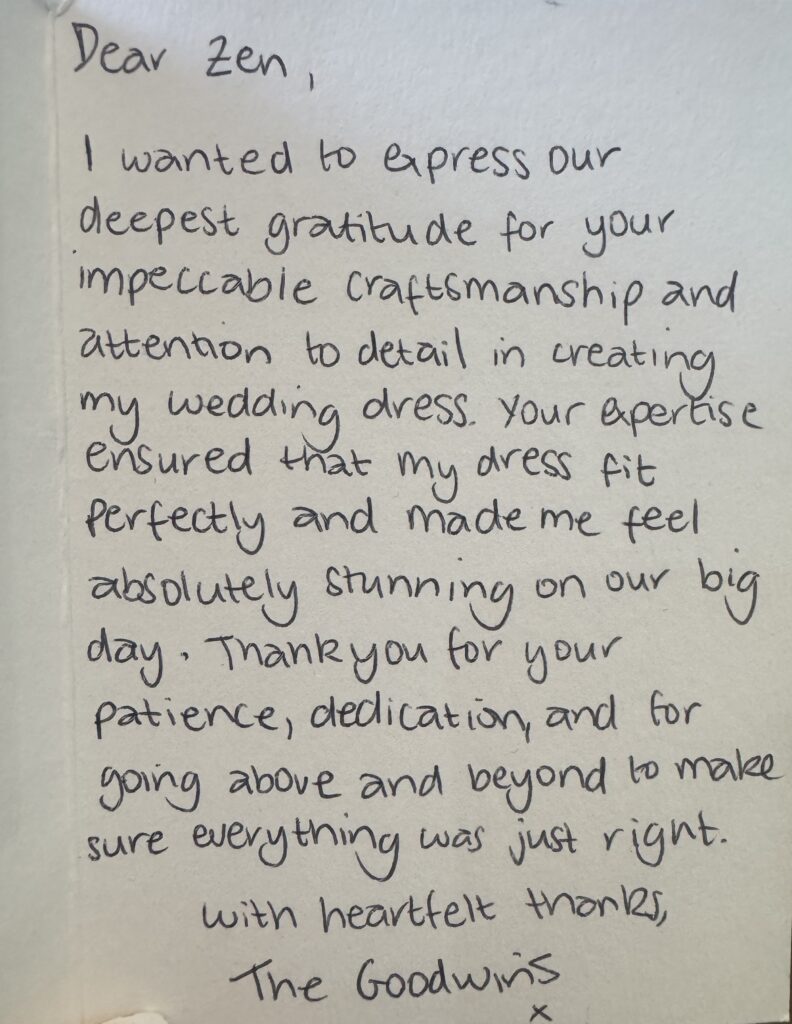 Dear Zen,
I wanted to express our
deepest gratitude for your
impeccable craftsmanship and
attention to detail in creating
my wedding dress. Your expertise
ensured that my dress fit
perfectly and made me feel
absolutely stunning on our big
day. Thank you for your
patience, dedication, and for
going above and beyond to make
sure everything was just right.
with heartfelt thanks,
The Goodwin's
x